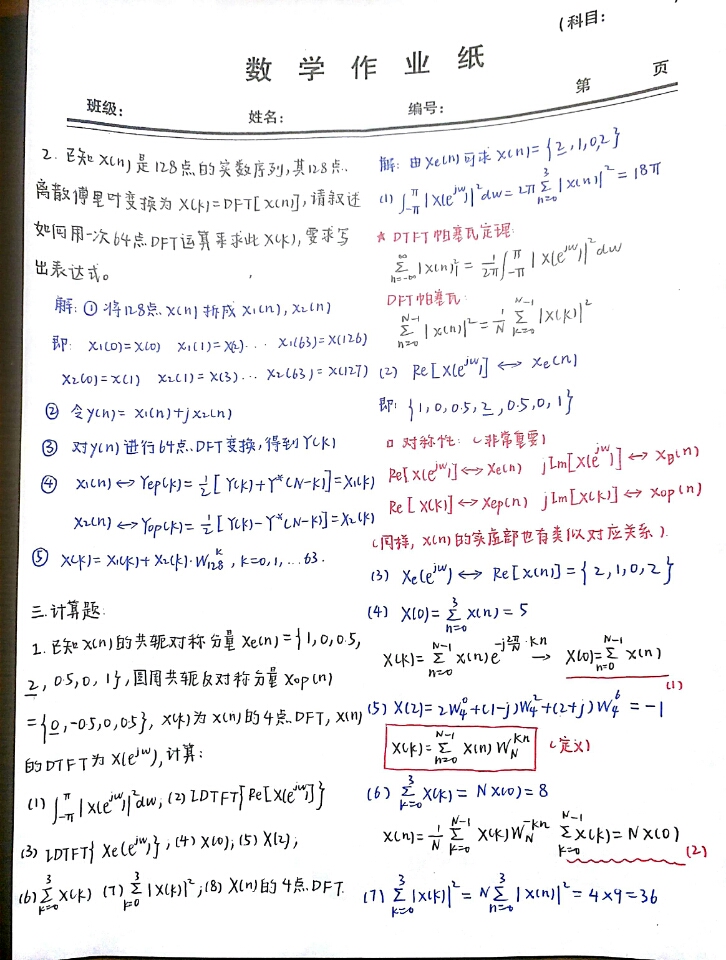 (科目:
数 学 作 业 纸
班级:
姓名:
编号:
第 页
2. 已知 x(n) 是128点的实数序列,其128点
离散傅里叶变换为 X(k)=DFT[x(n)],请叙述
如何用一次64点DFT运算来求此X(k),要求写
出表达式。
解: ① 将128点 x(n) 拆成 x1(n), x2(n)
即: x1(0)=x(0) x1(1)=x(2)... x1(63)=x(126)
x2(0)=x(1) x2(1)=x(3)... x2(63)=x(127)
② 令y(n)= x1(n)+jx2(n)
③ 对y(n)进行64点DFT变换,得到Y(k)
④ x1(n)↔Yep(k)=1/2[Y(k)+Y*(N-k)]=X1(k)
x2(n)↔Yop(k)=1/2[Y(k)-Y*(N-k)]=X2(k)
⑤ X(k)=X1(k)+X2(k)·W_128^k, k=0,1,...63.
三.计算题:
1. 已知x(n)的共轭对称分量Xe(n)={1,0,0.5,
2, 0.5,0,1},圆周共轭反对称分量Xop(n)
={0,-0.5,0,0.5}, X(k)为x(n)的4点DFT, x(n)
的DTFT为X(e^jw),计算:
(1) ∫_-π^π |X(e^jw)|²dw; (2) IDTFT{Re[X(e^jw)]}
(3) IDTFT{Xe(e^jw)}; (4) X(0); (5) X(2);
(6) Σ_k=0^3 X(k) (7) Σ_k=0^3 |X(k)|²; (8) X(n)的4点DFT.
解: 由Xe(n)可求 x(n)={2,1,0,2}
(1) ∫_-π^π |X(e^jw)|²dw=2π Σ_n=0^3 |x(n)|²=18π
★ DTFT帕塞瓦定理:
Σ_n=-∞^∞ |x(n)|²= 1/2π ∫_-π^π |X(e^jw)|²dw
DFT帕塞瓦:
Σ_n=0^N-1 |x(n)|²= 1/N Σ_k=0^N-1 |X(k)|²
(2) Re[X(e^jw)] ↔ xe(n)
即: {1,0,0.5,2,0.5,0,1}
□ 对称性: (非常重要)
Re[X(e^jw)]↔xe(n) jIm[X(e^jw)]↔x0(n)
Re[X(k)]↔xep(n) jIm[X(k)]↔xop(n)
(同样, x(n)的实虚部也有类似对应关系).
(3) Xe(e^jw)↔Re[x(n)]={2,1,0,2}
(4) X(0)=Σ_n=0^3 x(n)=5
X(k)=Σ_n=0^N-1 x(n)e^-j2π/N·kn → X(0)=Σ_n=0^N-1 x(n)
(1)
(5) X(2)=2W_4^0+(1-j)W_4^2+(2+j)W_4^6=-1
X(k)=Σ_n=0^N-1 x(n)W_N^kn (定义)
(6) Σ_k=0^3 X(k)=Nx(0)=8
x(n)=1/N Σ_k=0^N-1 X(k)W_N^-kn Σ_k=0^N-1 X(k)=NX(0)
(2)
(7) Σ_k=0^3 |X(k)|²=N Σ_n=0^3 |x(n)|²=4×9=36